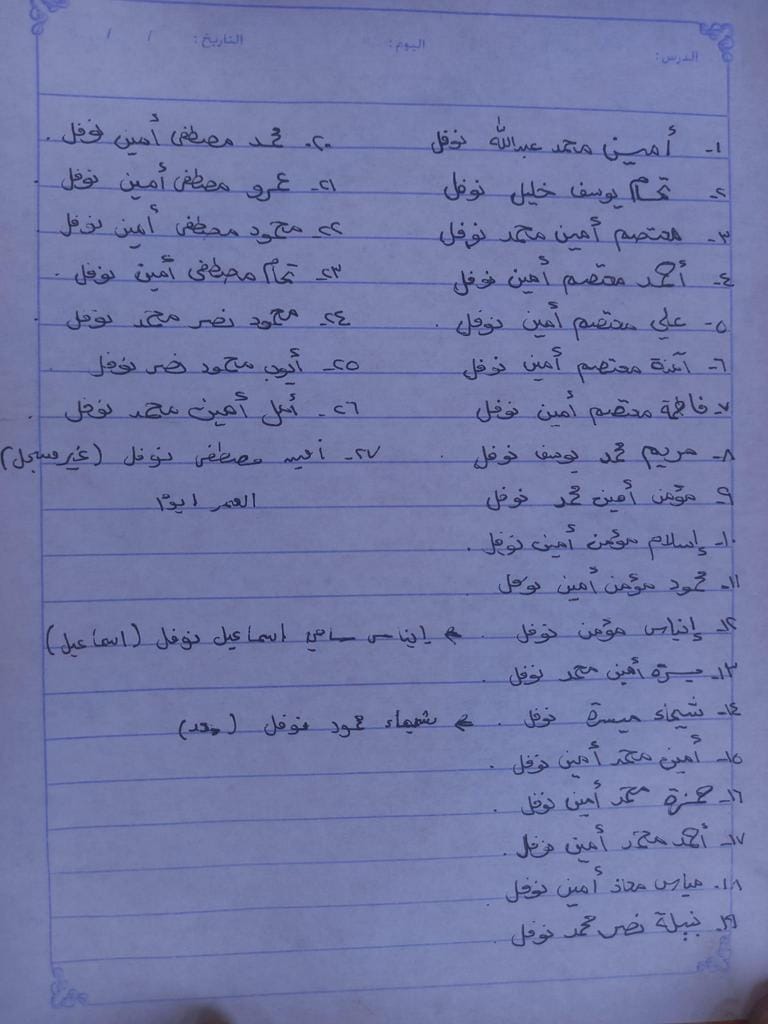 الدرس: اليوم: التاريخ: / /
١- أمين محمد عبدالله نوفل
٢- تمام يوسف خليل نوفل
٣- معتصم أمين محمد نوفل
٤- أحمد معتصم أمين نوفل
٥- علي معتصم أمين نوفل.
٦- آمنة معتصم أمين نوفل
٧- فاطمة معتصم أمين نوفل
٨- مريم محمد يوسف نوفل.
٩- مؤمن أمين محمد نوفل
١٠- إسلام مؤمن أمين نوفل.
١١- محمود مؤمن أمين نوفل
١٢- إيناس مؤمن نوفل. ← إيناس سامي اسماعيل نوفل (اسماعيل)
١٣- ميسرة أمين محمد نوفل.
١٤- شيماء ميسرة نوفل. ← شيماء محمود نوفل
١٥- أمين محمد أمين نوفل.
١٦- حمزة محمد أمين نوفل.
١٧- أحمد محمد أمين نوفل.
١٨- معاذ أمين نوفل
١٩- نبيلة نصر محمد نوفل.
٢٠- محمد مصطفى أمين نوفل.
٢١- عمرو مصطفى أمين نوفل.
٢٢- محمود مصطفى أمين نوفل
٢٣- تمام مصطفى أمين نوفل.
٢٤- محمود نصر محمد نوفل
٢٥- أيوب محمود نصر نوفل
٢٦- أمل أمين محمد نوفل.
٢٧- أمين مصطفى نوفل (غير مسجل)
العمر ١ يوم